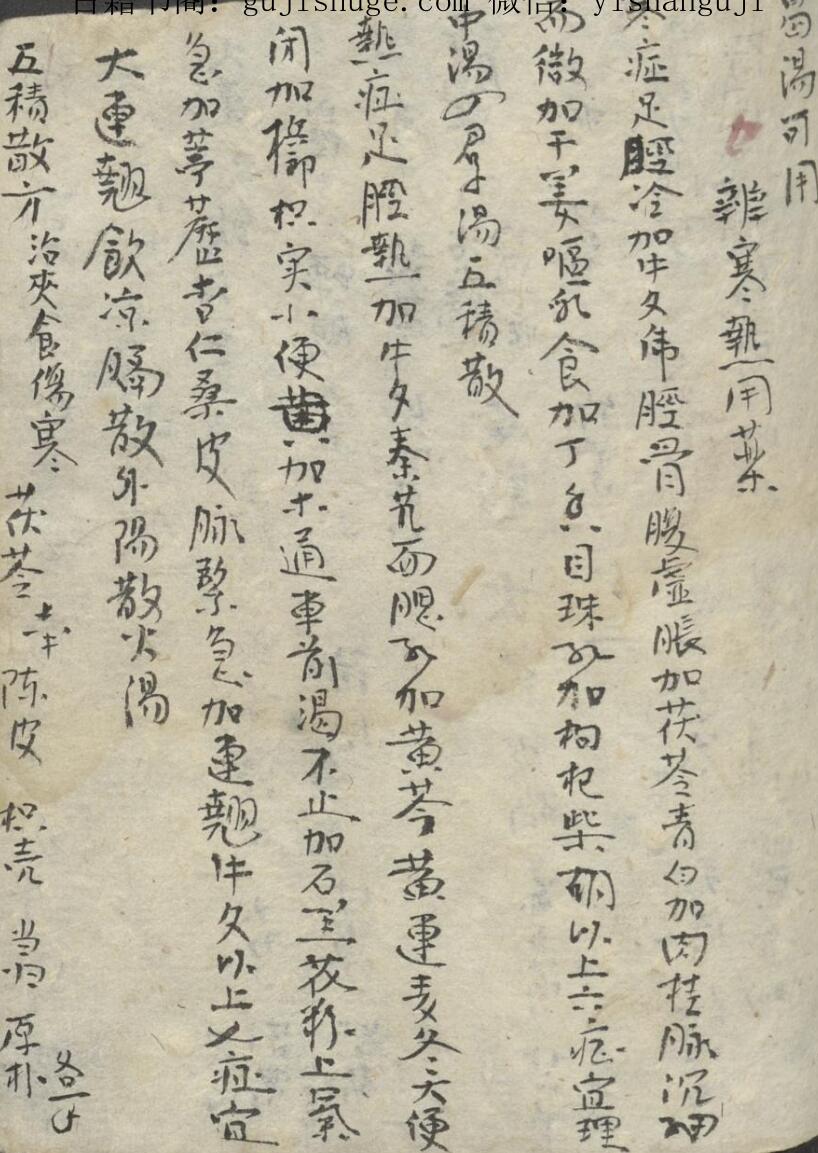 古籍书阁：gujishuge.com 微信：yishanguji
湯可用
辨寒熱用藥
寒症足脛冷加牛夕 脛骨腹虛脹加茯苓青白加肉桂脉沉細
而微加干姜嘔乳食加丁香目珠 加枸杞柴胡以上六症宜理
中湯四君子湯五積散
熱症足脛熱加牛夕秦艽面腮 加黄芩黄連麦冬大便
闭加梹榔枳实小便黄加木通車前渴不止加石羔花粉上氣
急加葶藶杏仁桑皮脉緊急加連翹牛夕以上七症宜
大連翹飲凉膈散外 陽散火湯
五積散方治夾食傷寒 茯苓 陈皮 枳壳 当归 厚朴 各一